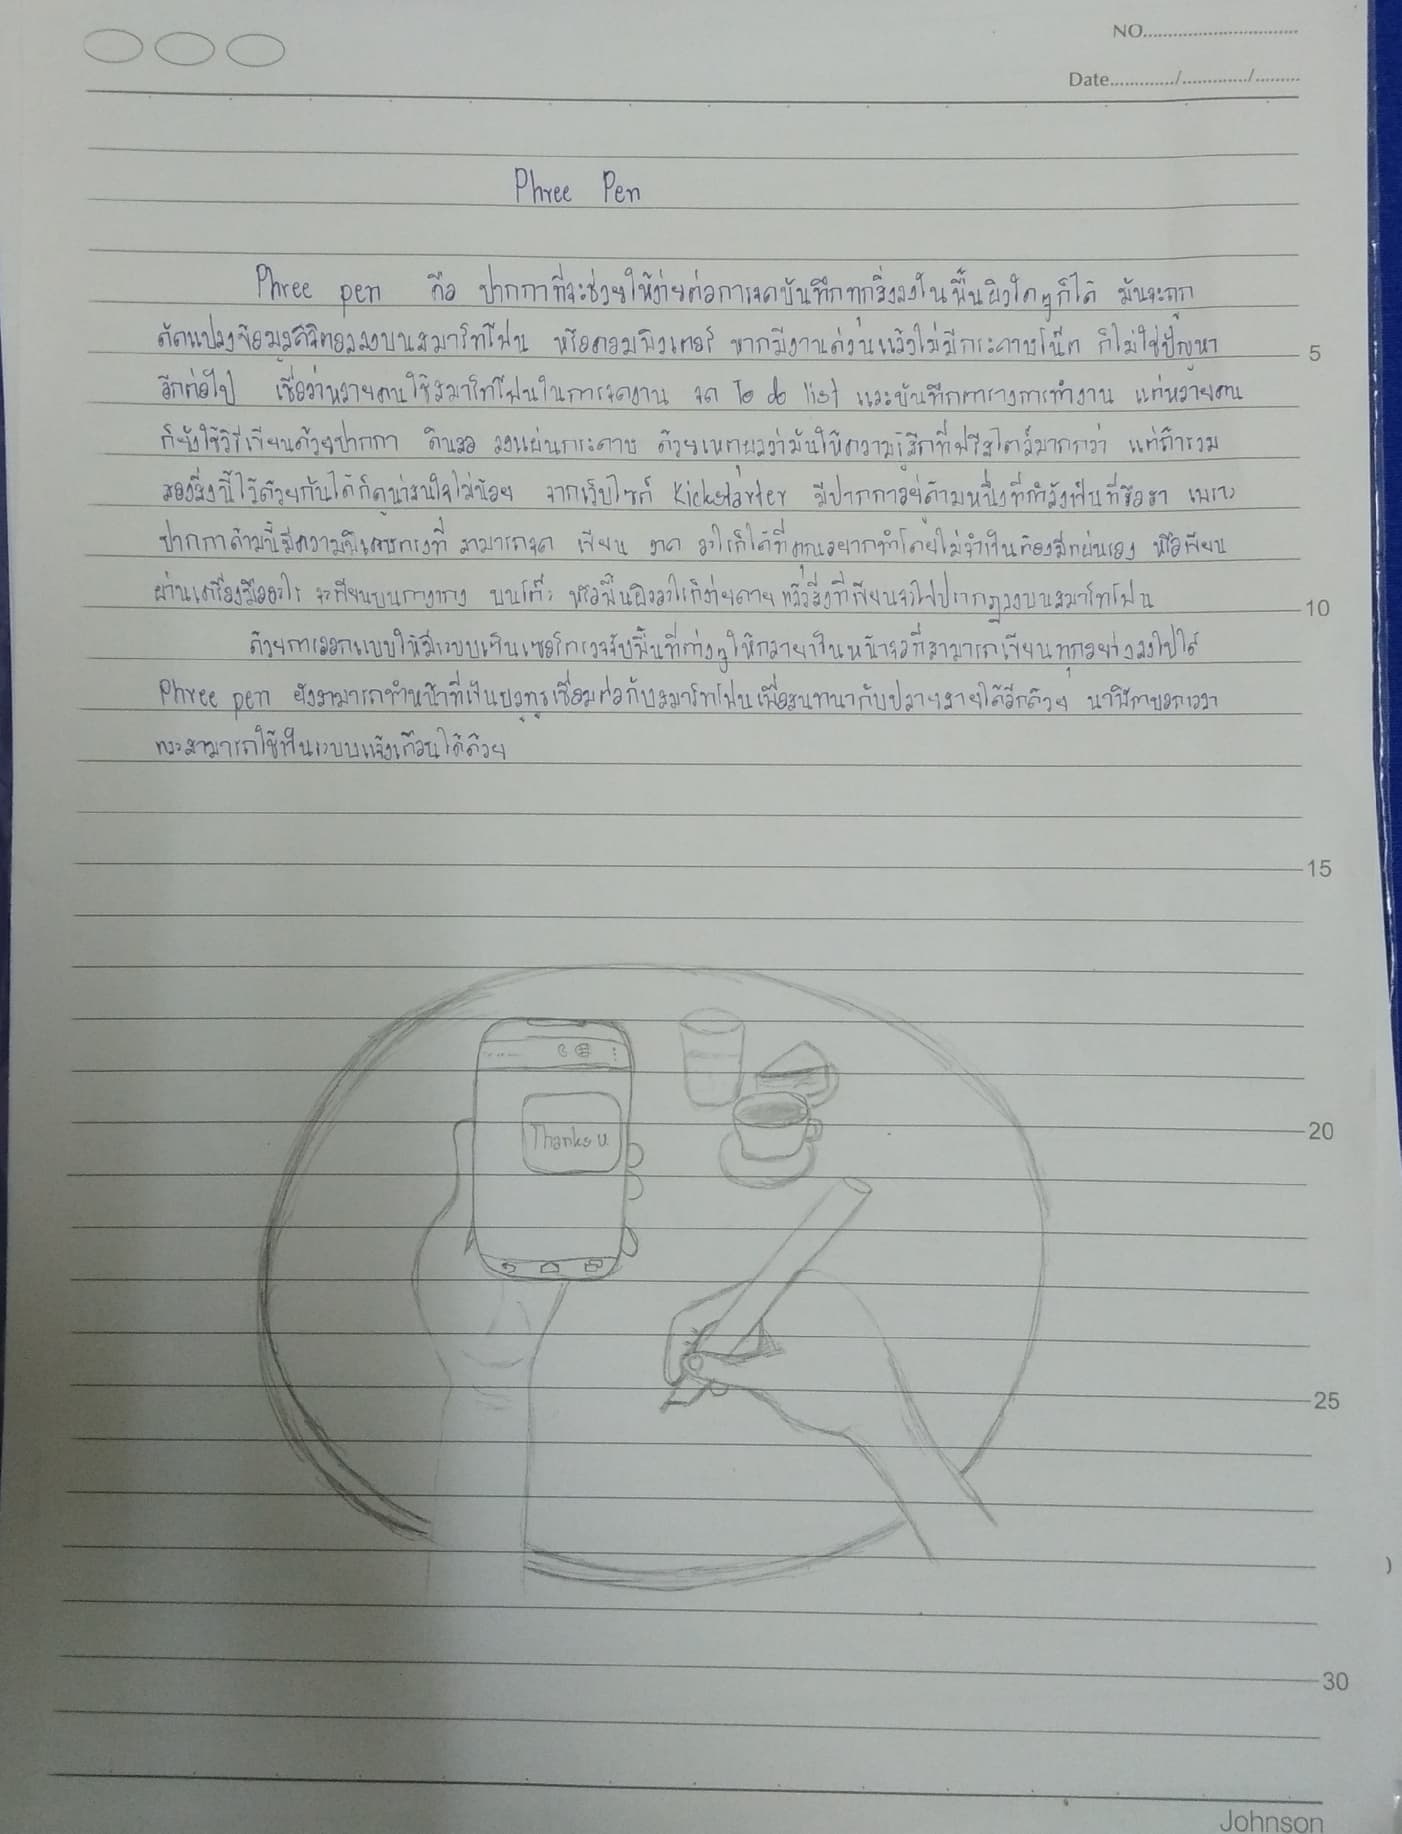 NO..............................
Date............./............./.........
Phree Pen
Phree pen คือ ปากกาที่จะช่วยให้ง่ายต่อการจดบันทึกทุกสิ่งลงในพื้นผิวใดๆก็ได้ มันจะถูก
ดัดแปลงข้อมูลดิจิตอลลงบนสมาร์ทโฟน หรือคอมพิวเตอร์ หากมีงานด่วนแล้วไม่มีกระดาษโน๊ต ก็ไม่ใช่ปัญหา
5
อีกต่อไป เชื่อว่าหลายคนใช้สมาร์ทโฟนในการจดงาน จด To do list และบันทึกตารางการทำงาน แต่หลายคน
ก็ยังใช้วิธีเขียนด้วยปากกา ดินสอ ลงแผ่นกระดาษ ด้วยเหตุผลว่ามันให้ความรู้สึกที่ฟรีสไตล์มากกว่า แต่ถ้ารวม
สองสิ่งนี้ไว้ด้วยกันได้ก็ดูน่าสนใจไม่น้อย จากเว็บไซต์ Kickstarter มีปากกาอยู่ด้ามหนึ่งที่กำลังเป็นที่ฮือฮา เพราะ
ปากกาด้ามนี้มีความพิเศษตรงที่ สามารถจด เขียน วาด อะไรก็ได้ที่คุณอยากทำโดยไม่จำเป็นต้องมีแผ่นรอง หรือเขียน
ผ่านเครื่องมืออะไร จะเขียนบนกางเกง บนโต๊ะ หรือพื้นผิวอะไรก็ง่ายดาย แล้วสิ่งที่เขียนจะไปปรากฏลงบนสมาร์ทโฟน
10
ด้วยการออกแบบให้มีระบบเซ็นเซอร์ตรวจจับพื้นที่ต่างๆให้กลายเป็นหน้าจอที่สามารถเขียนทุกอย่างลงไปได้
Phree pen ยังสามารถทำหน้าที่เป็นบลูทูธเชื่อมต่อกับสมาร์ทโฟนเพื่อสนทนากับปลายสายได้อีกด้วย นาฬิกาบอกเวลา
และสามารถใช้เป็นระบบแจ้งเตือนได้ด้วย
15
20
Thanks u
25
30
Johnson